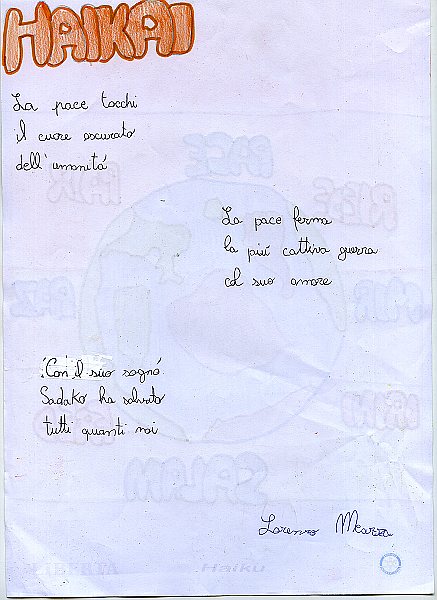 HAIKAI
La pace tocchi
il cuore oscurato
dell'umanità
La pace ferma
la più cattiva guerra
col suo amore
Con il suo sogno
Sadako ha salvato
tutti quanti noi
Lorenzo
PACE
SALAM
LIBERTÀ
Haiku